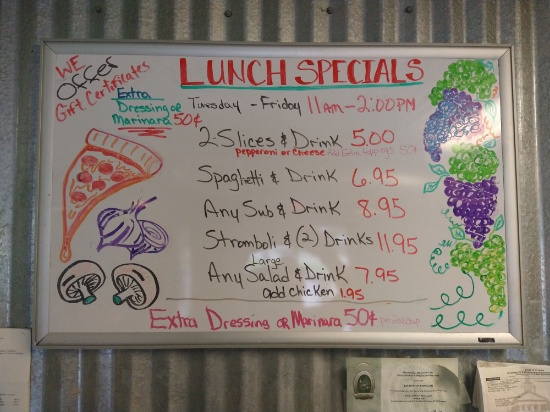 WE
Offer
Gift Certificates
Extra
Dressing or
Marinara 50¢
LUNCH SPECIALS
Tuesday - Friday 11AM-2:00PM
2-Slices & Drink 5.00
Pepperoni or Cheese Add Extra Toppings 50¢
Spaghetti & Drink 6.95
Any Sub & Drink 8.95
Stromboli & (2) Drinks 11.95
Large
Any Salad & Drink 7.95
add chicken 1.95
Extra Dressing or Marinara 50¢